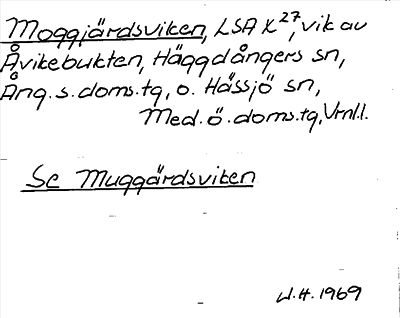 Moggjärdsviken, LSA X 27, vik av
Åvikebukten, Häggdångers sn,
Ång. s. doms. tg, o. Hässjö sn,
Med. ö. doms. tg, Vrnl. l.
Se Muggärdsviken
W. H. 1969